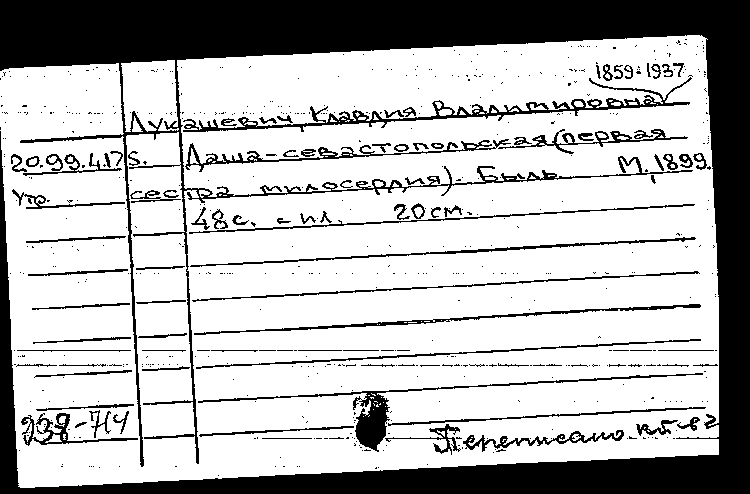 1859-1937
Лукашевич, Клавдия Владимировна
20.99.417 S. Даша-севастопольская (первая
Утр. сестра милосердия). Быль М., 1899.
48 с. с ил. 20 см.
938-714
Переписано